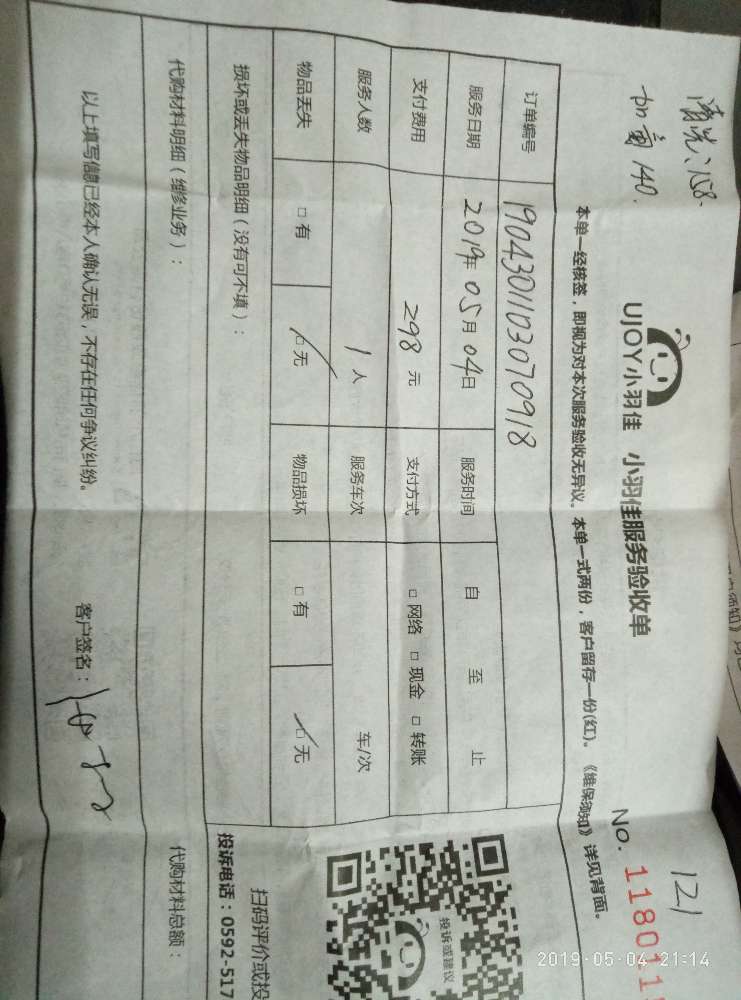 158.
加氟140.
121
UJOY小羽佳 小羽佳服务验收单
NO. 1180111
本单一经核签，即视为对本次服务验收无异议。本单一式两份，客户留存一份(红)。《维保须知》详见背面。
订单编号 1904301103070918
服务日期 2019年05月04日 服务时间 自 至 止
支付费用 298元 支付方式 □ 网络 □ 现金 □ 转账
服务人数 1人 服务车次 车/次
物品丢失 □ 有 □ 无 物品损坏 □ 有 □ 无
损坏或丢失物品明细（没有可不填）：
代购材料明细（维修业务）： 代购材料总额：
以上填写信息已经本人确认无误，不存在任何争议纠纷。 客户签名：
投诉或建议
扫码评价或投
投诉电话：0592-517
2019-05-04 21:14